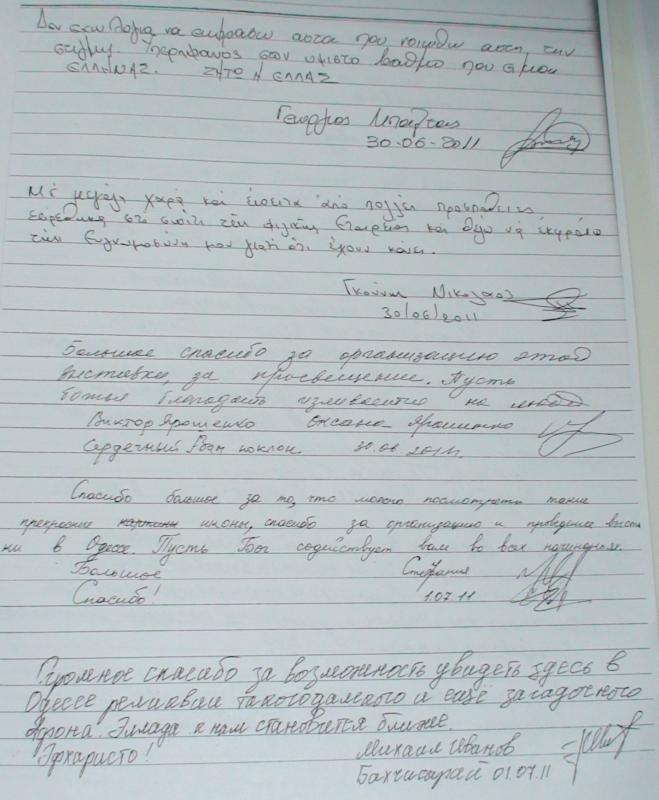 Δεν εχω λογια να εκφρασω αυτα που νοιωθω αυτη την
στιγμη. Υπερηφανος στον υψιστο βαθμο που ειμαι
ΕΛΛΗΝΑΣ. ΖΗΤΩ Η ΕΛΛΑΣ
Γεωργιος
30-06-2011
Μέ μεγάλη χαρά και έπειτα άπό πολλές προσπάθειες
εύρέθηκα στό σπίτι τῆς φιλικῆς Εταιρείας και θέλω νά ἐκφράσω
τήν Εὐγνωμοσύνη μου γιατί ὅτι ἔχουν κάνει.
Γκούνης Νικόλαος
30/06/2011
Большое спасибо за организацию этой
выставки, за просвещение. Пусть
Божья благодать изливается на людей
Виктор Ярошенко Оксана Ярошенко
Сердечный Вам поклон. 30.06.2011.
Спасибо большое за то, что можно посмотреть такие
прекрасные картины иконы, спасибо за организацию и проведение выста
ки в Одессе. Пусть Бог содействует вам во всех начинаньях.
Большое Стефания
Спасибо! 1.07.11
Огромное спасибо за возможность увидеть здесь в
Одессе реликвии такогодалекого и ещё загадочного
Афона. Эллада к нам становится ближе.
Эфхаристо! Михаил Иванов
Бахчисарай 01.07.11